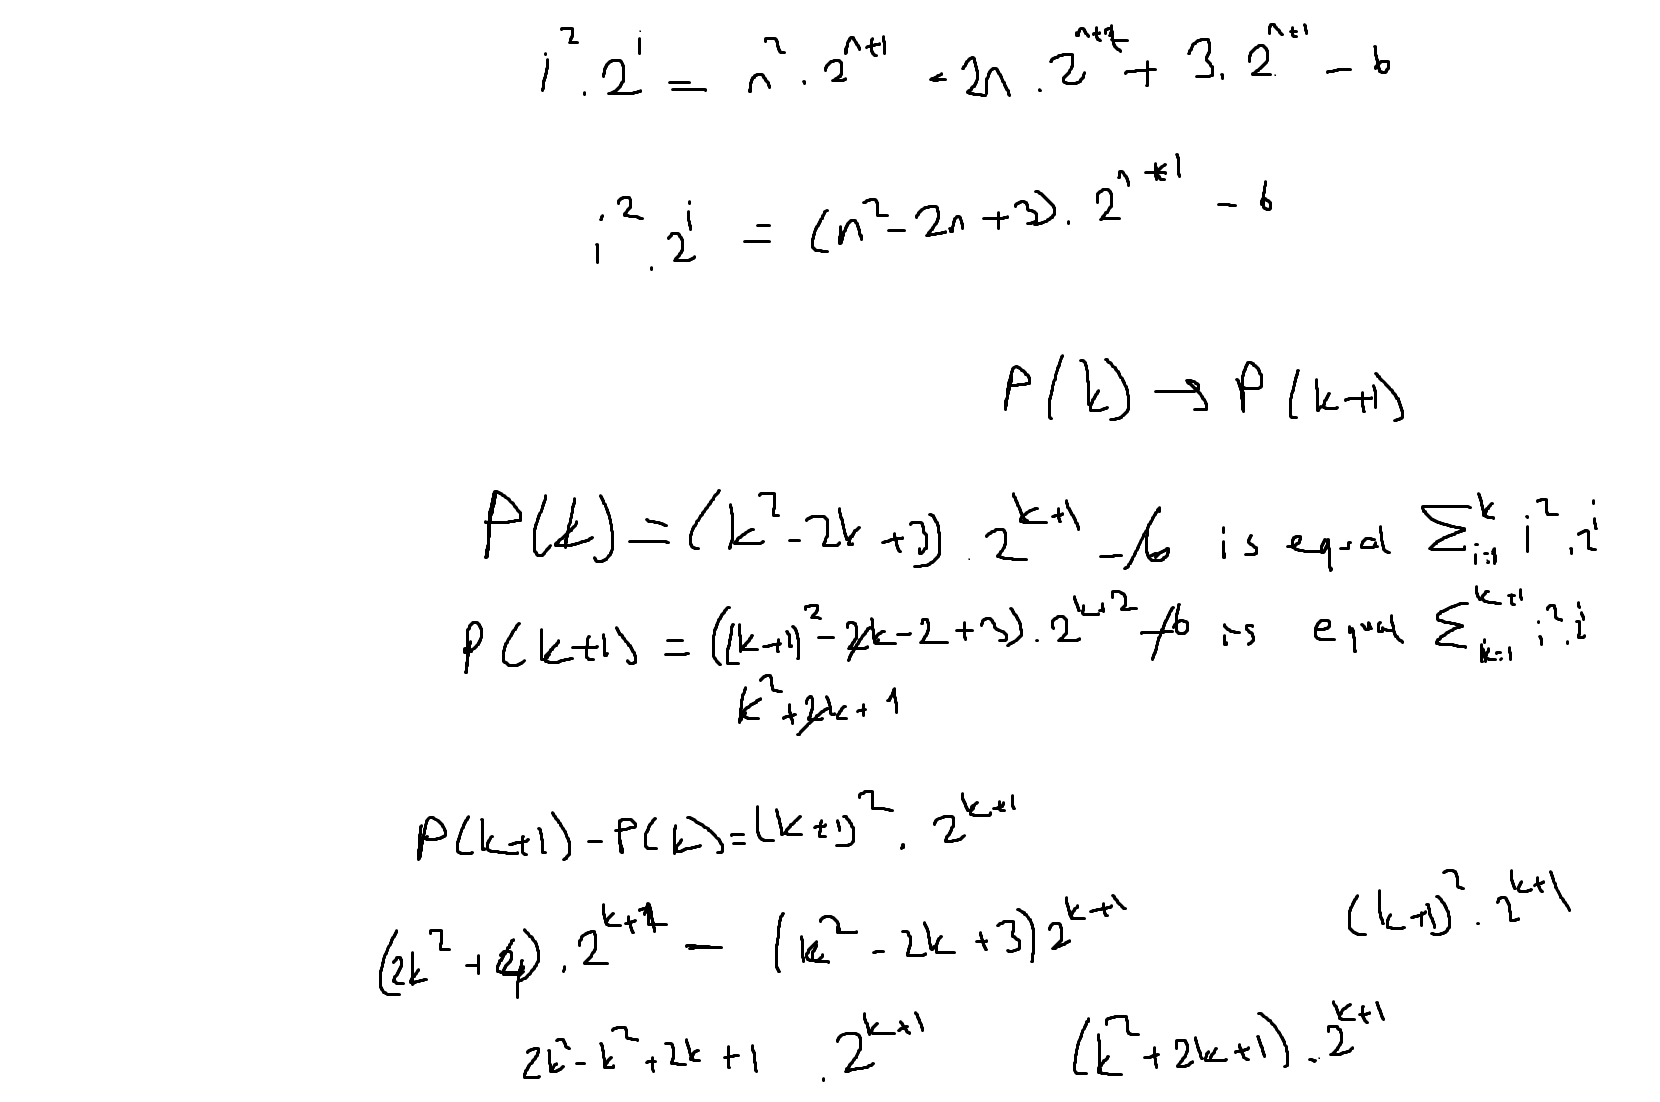 i² . 2ⁱ = n² . 2ⁿ⁺¹ - 2n . 2ⁿ⁺¹ + 3 . 2ⁿ⁺¹ - 6
i² . 2ⁱ = (n² - 2n + 3) . 2ⁿ⁺¹ - 6
P(k) → P(k+1)
P(k) = (k² - 2k + 3) . 2ᵏ⁺¹ - 6 is equal Σᵢ₌₁ᵏ i² . 2ⁱ
P(k+1) = ((k+1)² - 2k - 2 + 3) . 2ᵏ⁺² - 6 is equal Σₖ₌₁ᵏ⁺¹ i² . 2ⁱ
k² + 2k + 1
P(k+1) - P(k) = (k+1)² . 2ᵏ⁺¹
(2k² + 4) . 2ᵏ⁺¹ - (k² - 2k + 3) 2ᵏ⁺¹ (k+1)² . 2ᵏ⁺¹
2k² - k² + 2k + 1 . 2ᵏ⁺¹ (k² + 2k + 1) . 2ᵏ⁺¹